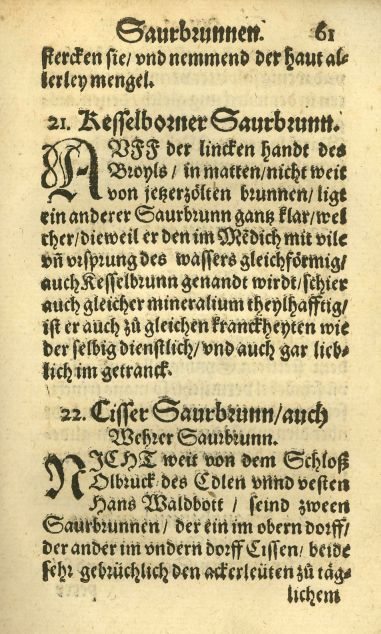 Saurbrunnen. 61
stercken sie/ vnd nemmend der haut al-
lerley mengel.
21. Kesselborner Saurbrunn.
AVFF der lincken handt des
Broyls/ in matten/ nicht weit
von jetzerzölten brunnen/ ligt
ein anderer Saurbrunn gantz klar/ wel
cher/ dieweil er den im Mẽdich mit vile
vñ vrsprung des wassers gleichförmig/
auch Kesselbrunn genandt wirdt/ schier
auch gleicher mineralium theylhafftig/
ist er auch zů gleichen kranckheyten wie
der selbig dienstlich/ vnd auch gar lieb-
lich im getranck.
22. Cisser Saurbrunn/ auch
Wehrer Saurbrunn.
NICHT weit von dem Schloß
Olbruck des Edlen vnnd vesten
Hans Waldbott / seind zween
Saurbrunnen/ der ein im obern dorff/
der ander im vndern dorff Cissen/ beide
sehr gebrüchlich den ackerleüten zů täg-
lichem